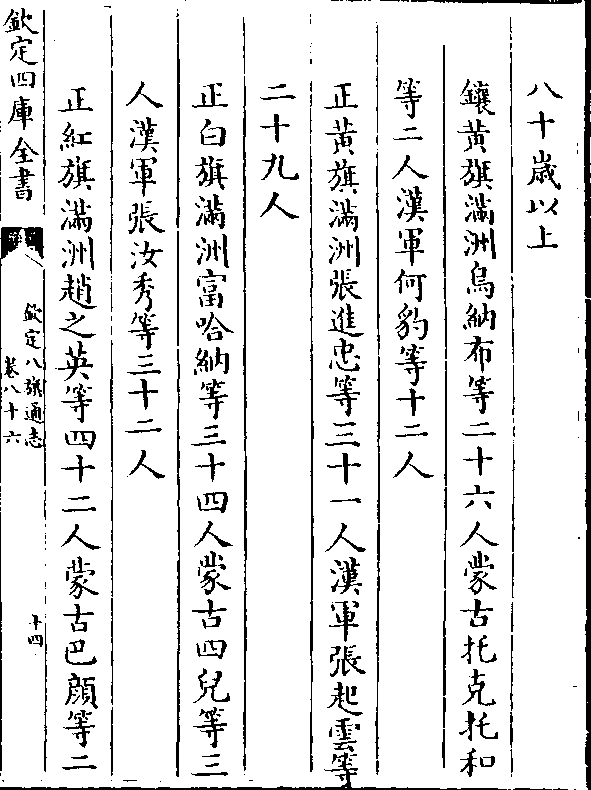 八十歳以上
鑲黄旗滿洲烏納布等二十六人蒙古托克托和
等二人漢軍何豹等十二人
正黄旗滿洲張進忠等三十一人漢軍張起雲等
二十九人
正白旗滿洲富哈納等三十四人蒙古四兒等三
人漢軍張汝秀等三十二人
正紅旗滿洲趙之英等四十二人蒙古巴顔等二
欽定四庫全書
欽定八旗通志
卷八十六
十四